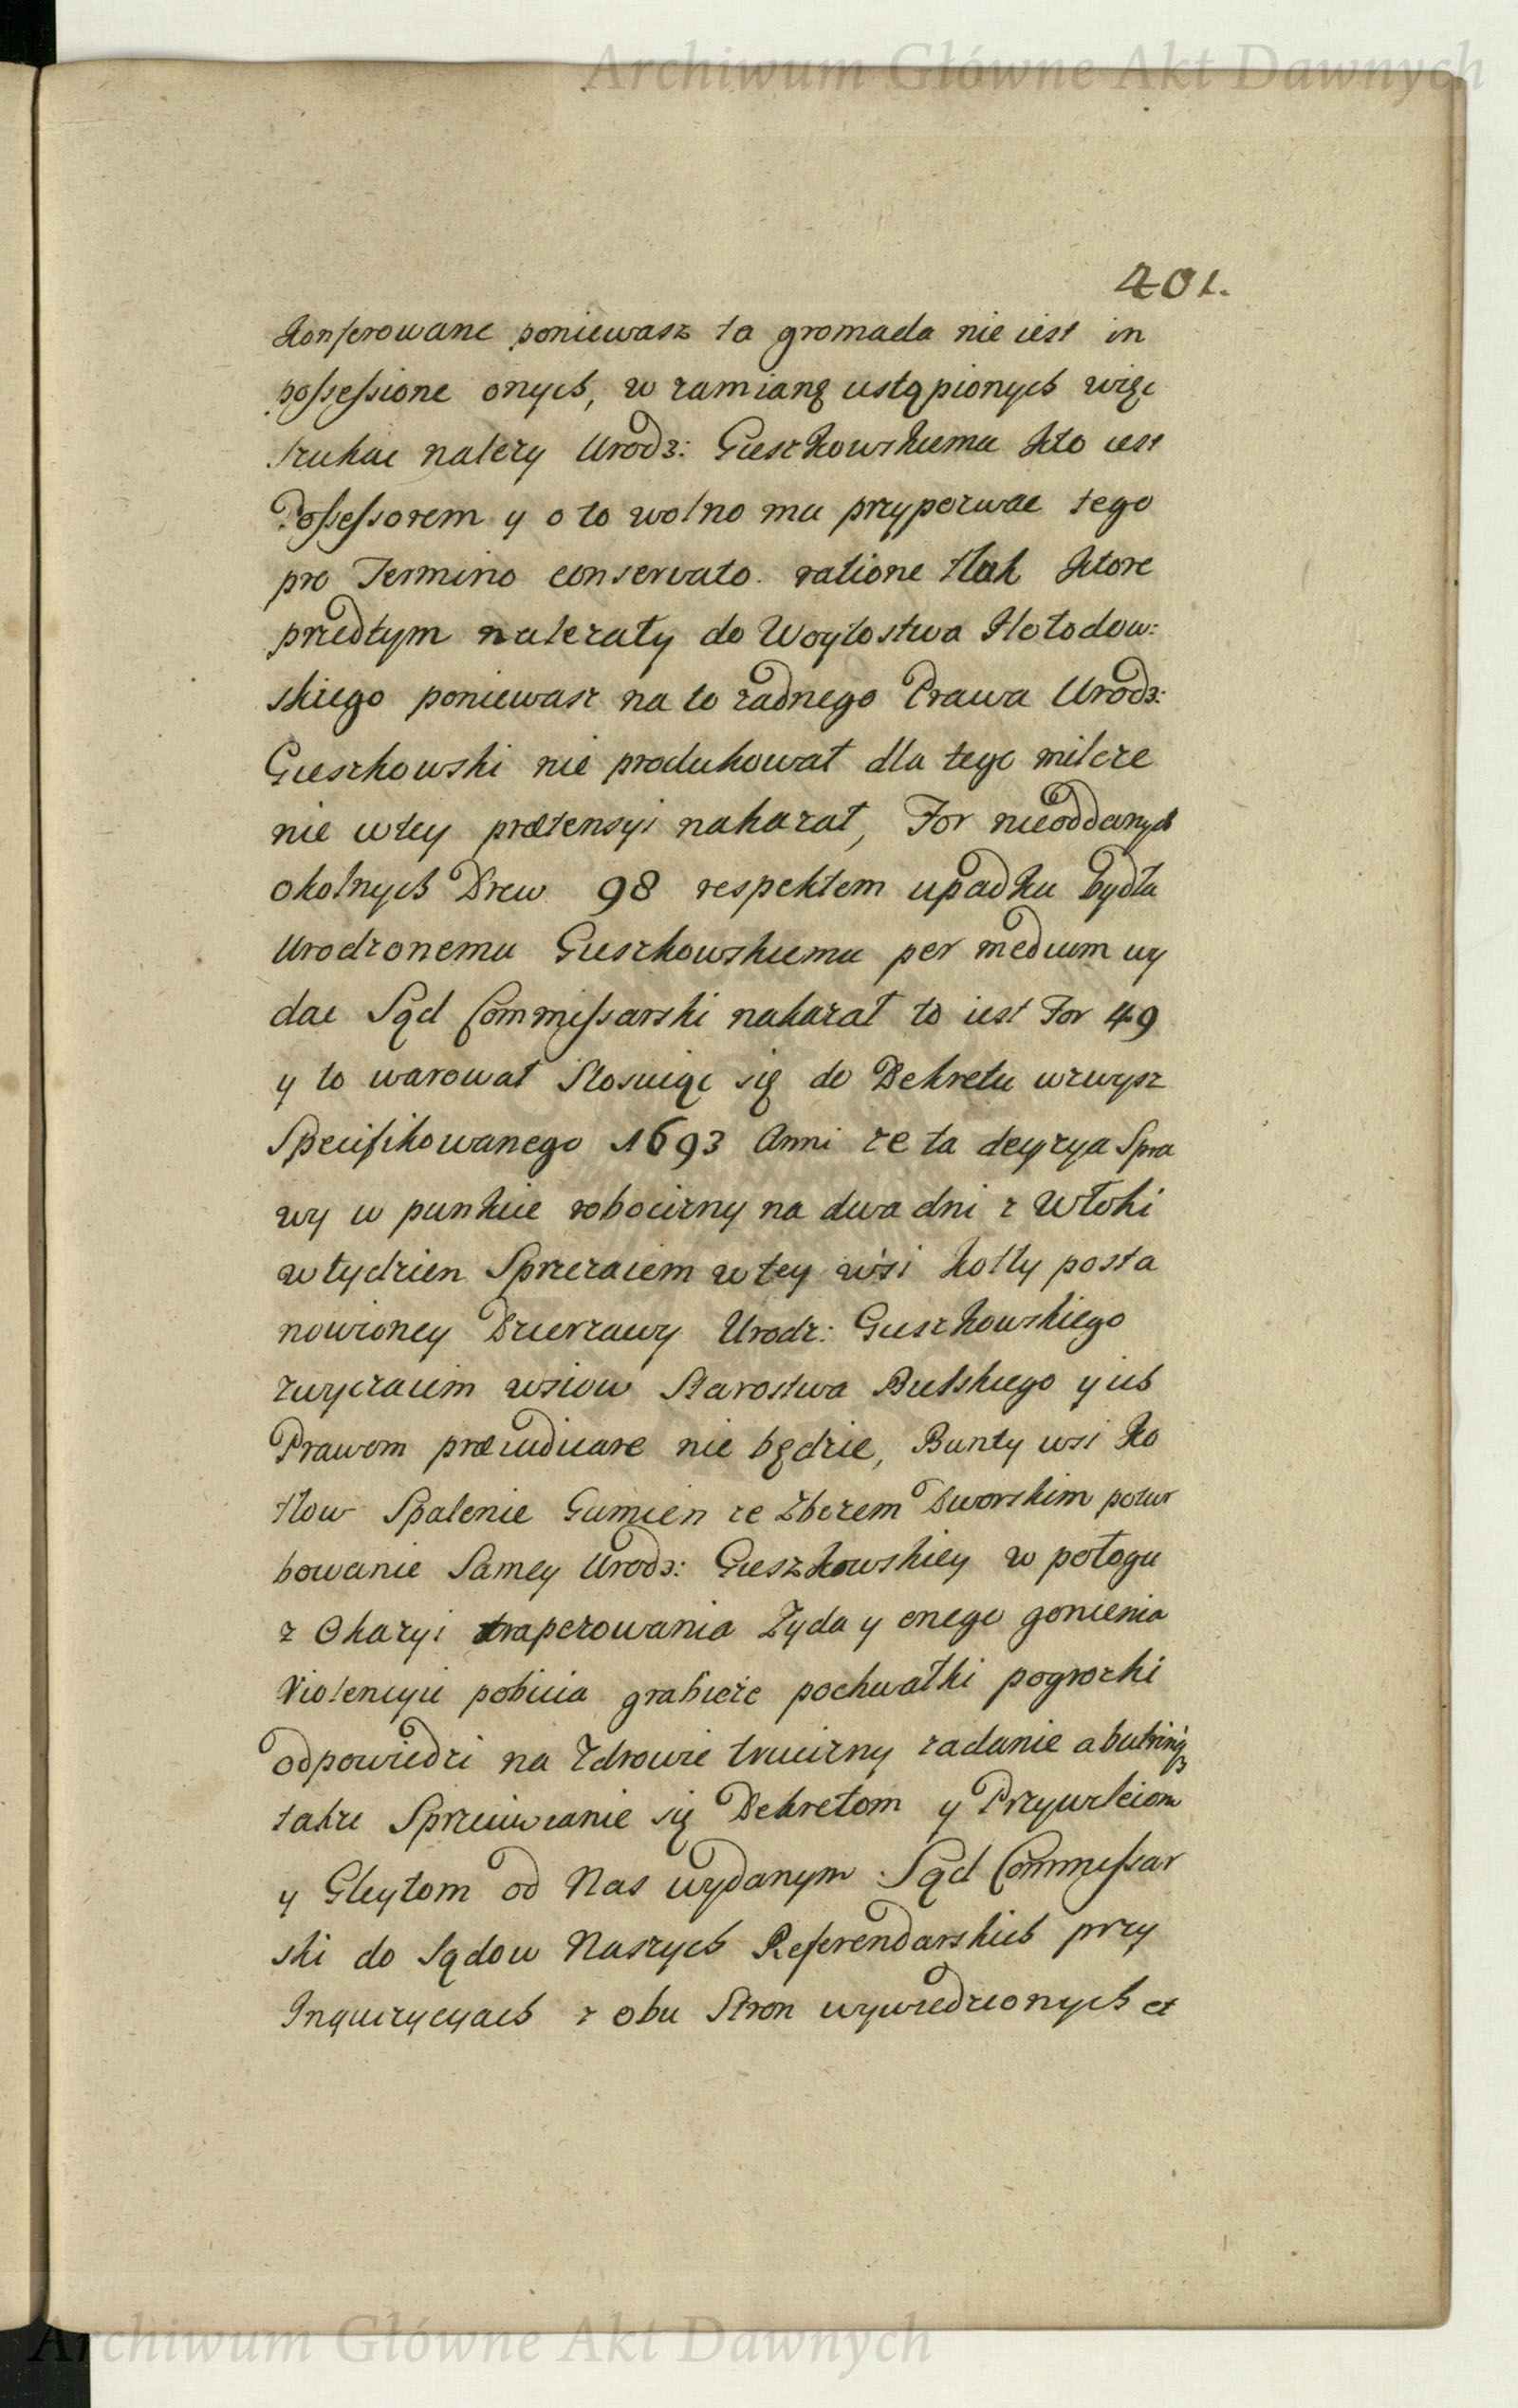 Archiwum Główne Akt Dawnych
401.
konferowane poniewasz ta gromada nie iest in
possessione onych, w zamianę ustąpionych więc
szukac nalezy Urodz: Gieszkowskiemu kto iest
Possessorem y o to wolno mu przypozwac tego
pro Termino conservato. ratione Łąk ktore
przedtym nalezały do Woytostwa Hołodow:
skiego poniewasz na to zadnego Prawa Urodz:
Gieszkowski nie produkował dla tego milcze
nie wtey prætensyi nakazał, For nieoddanych
okolnych Drew 98 respektem upadku bydła
Urodzonemu Gieszkowskiemu per medium wy
dac Sąd Commissarski nakazał to iest For 49
y to warował Stosuiąc się do Dekretu wzwysz
Specifikowanego 1693 Anni ze ta decyzya Spra
wy w punkcie robocizny na dwa dni z Włoki
w tydzien Sprzezaiem w tey wsi Kotły posta
nowioney Dzierzawy Urodz: Gieszkowskiego
zwyczaiem wsiow Starostwa Bielskiego y ich
Prawom præiudicare nie będzie, Bunty wsi Ko
tłow Spalenie Gumien ze Zbozem Dworskim potur
bowanie Samey Urodz: Gieszkowskiey w połogu
z Okazyi traperowania Zyda y onego gonienia
Violencyie pobicia grabieże pochwałki pogrozki
odpowiedzi na Zdrowie trucizny zadanie
takze Sprzeciwianie się Dekretom y Przywileiom
y Gleytom od Nas wydanym Sąd Commissar
ski do Sądow Naszych Referendarskich przy
Inquizycyach z obu Stron wywiedzionych et
Archiwum Główne Akt Dawnych